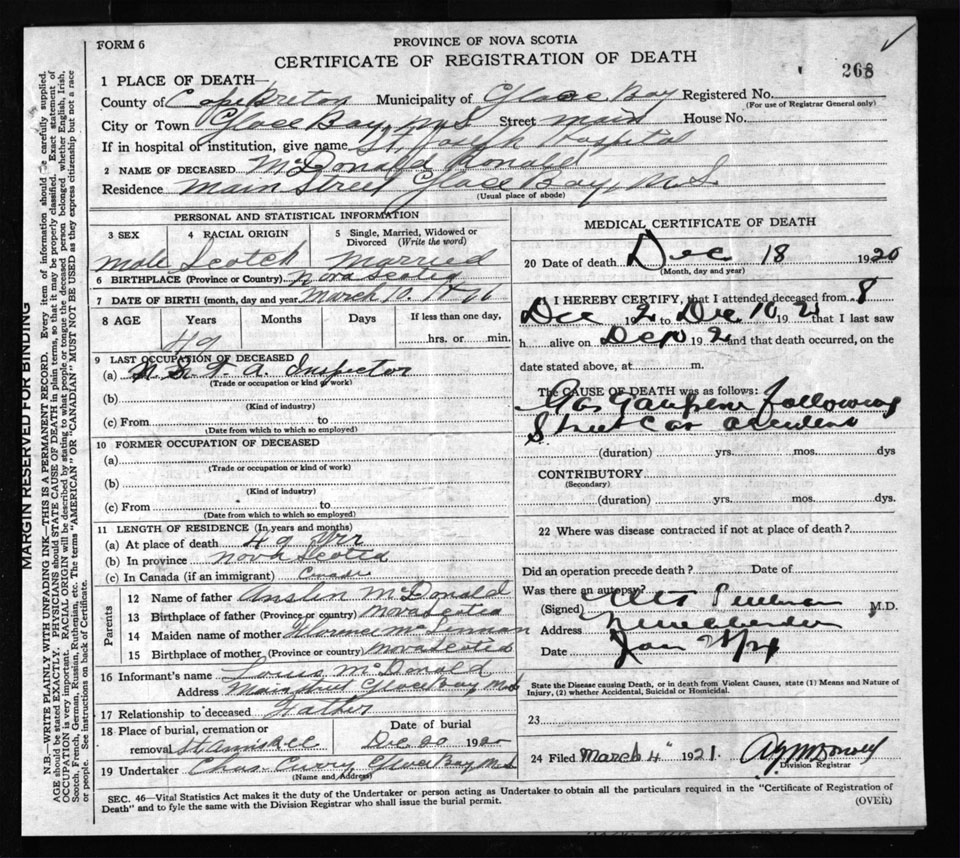 FORM 6
PROVINCE OF NOVA SCOTIA
CERTIFICATE OF REGISTRATION OF DEATH
268
1 PLACE OF DEATH—
County of Cape Breton Municipality of Glace Bay Registered No.
(For use of Registrar General only)
City or Town Glace Bay, N.S Street main House No.
If in hospital of institution, give name St. Joseph Hospital
2 NAME OF DECEASED McDonald Ronald
Residence Main Street Glace Bay, N.S.
(Usual place of abode)
PERSONAL AND STATISTICAL INFORMATION
3 SEX 4 RACIAL ORIGIN 5 Single, Married, Widowed or Divorced (Write the word)
male Scotch Married
6 BIRTHPLACE (Province or Country) Nova Scotia
7 DATE OF BIRTH (month, day and year) March 10.
8 AGE Years Months Days If less than one day,
49 hrs. or min.
9 LAST OCCUPATION OF DECEASED
(a) Inspector
(Trade or occupation or kind of work)
(b)
(Kind of industry)
(c) From to
(Date from which to which so employed)
10 FORMER OCCUPATION OF DECEASED
(a)
(Trade or occupation or kind of work)
(b)
(Kind of industry)
(c) From to
(Date from which to which so employed)
11 LENGTH OF RESIDENCE (In years and months)
(a) At place of death 49 yrs
(b) In province Nova Scotia
(c) In Canada (if an immigrant)
Parents
12 Name of father McDonald
13 Birthplace of father (Province or country) Nova Scotia
14 Maiden name of mother
15 Birthplace of mother (Province or country) Nova Scotia
16 Informant's name McDonald
Address Main Glace Bay N.S
17 Relationship to deceased Father
18 Place of burial, cremation or removal Date of burial
Dec 20 1920
19 Undertaker Chas. Curry, Glace Bay N.S
(Name and Address)
MEDICAL CERTIFICATE OF DEATH
20 Date of death Dec 18 1920
(Month, day and year)
I HEREBY CERTIFY, that I attended deceased from 8
Dec 192 to Dec 10 192 that I last saw
h alive on Dec 192 and that death occurred, on the
date stated above, at m.
The CAUSE OF DEATH was as follows:
Gas Gangrene following
Street Car accident
(duration) yrs. mos. dys
CONTRIBUTORY
(Secondary)
(duration) yrs. mos. dys.
22 Where was disease contracted if not at place of death?
Did an operation precede death? Date of
Was there an autopsy?
(Signed) M.D.
Address
Date Jan
State the Disease causing Death, or in death from Violent Causes, state (1) Means and Nature of
Injury, (2) whether Accidental, Suicidal or Homicidal.
23
24 Filed March 4" 1921.
Division Registrar
SEC. 46—Vital Statistics Act makes it the duty of the Undertaker or person acting as Undertaker to obtain all the particulars required in the "Certificate of Registration of
Death" and to fyle the same with the Division Registrar who shall issue the burial permit.
(OVER)
MARGIN RESERVED FOR BINDING
N.B.—WRITE PLAINLY WITH UNFADING INK—THIS IS A PERMANENT RECORD. Every item of information should be carefully supplied.
AGE should be stated EXACTLY. PHYSICIANS should STATE CAUSE OF DEATH in plain terms, so that it may be properly classified. Exact statement of
OCCUPATION is very important. RACIAL ORIGIN will be described by stating to what people or tongue the deceased person belonged, whether English, Irish,
Scotch, French, German, Russian, Ruthenian, etc. The terms "AMERICAN" OR "CANADIAN" MUST NOT BE USED as they express citizenship but not a race
or people. See instructions on back of Certificate.